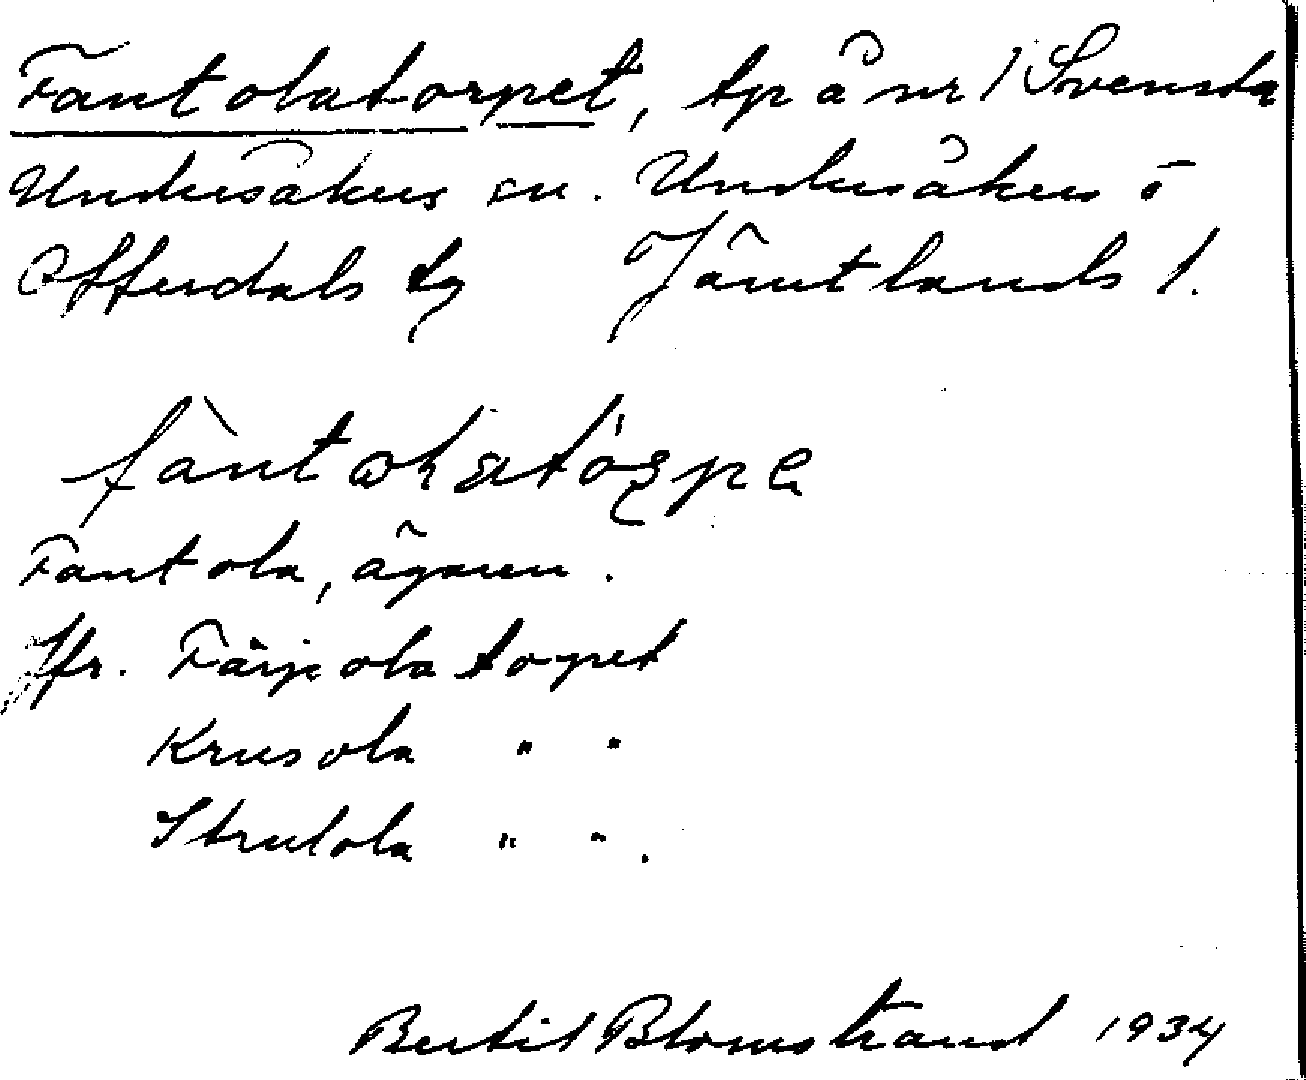 Fantolatorpet, tp å nr 1 Svensta
Undersåkers sn. Undersåkers o
Offerdals tg Jämtlands l.
Fantola, ägaren.
Jfr. Färjolatorpet
Krusola " "
Strutola " ".
Bertil Blomstrand 1934